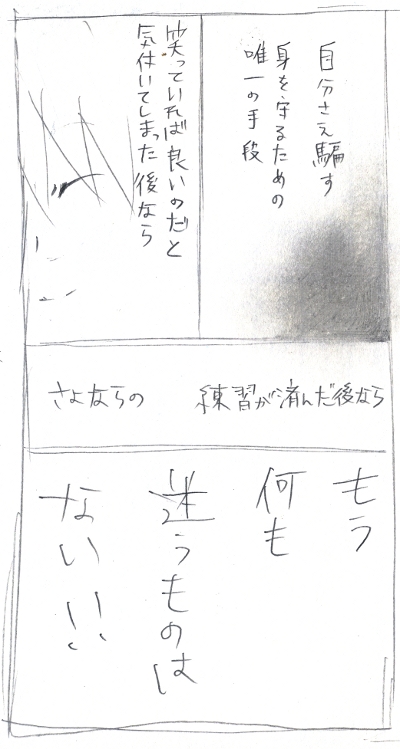 自分さえ騙す
身を守るための
唯一の手段
笑っていれば良いのだと
気付いてしまった後なら
さよならの 練習が済んだ後なら
もう
何も
迷うものは
ない!!